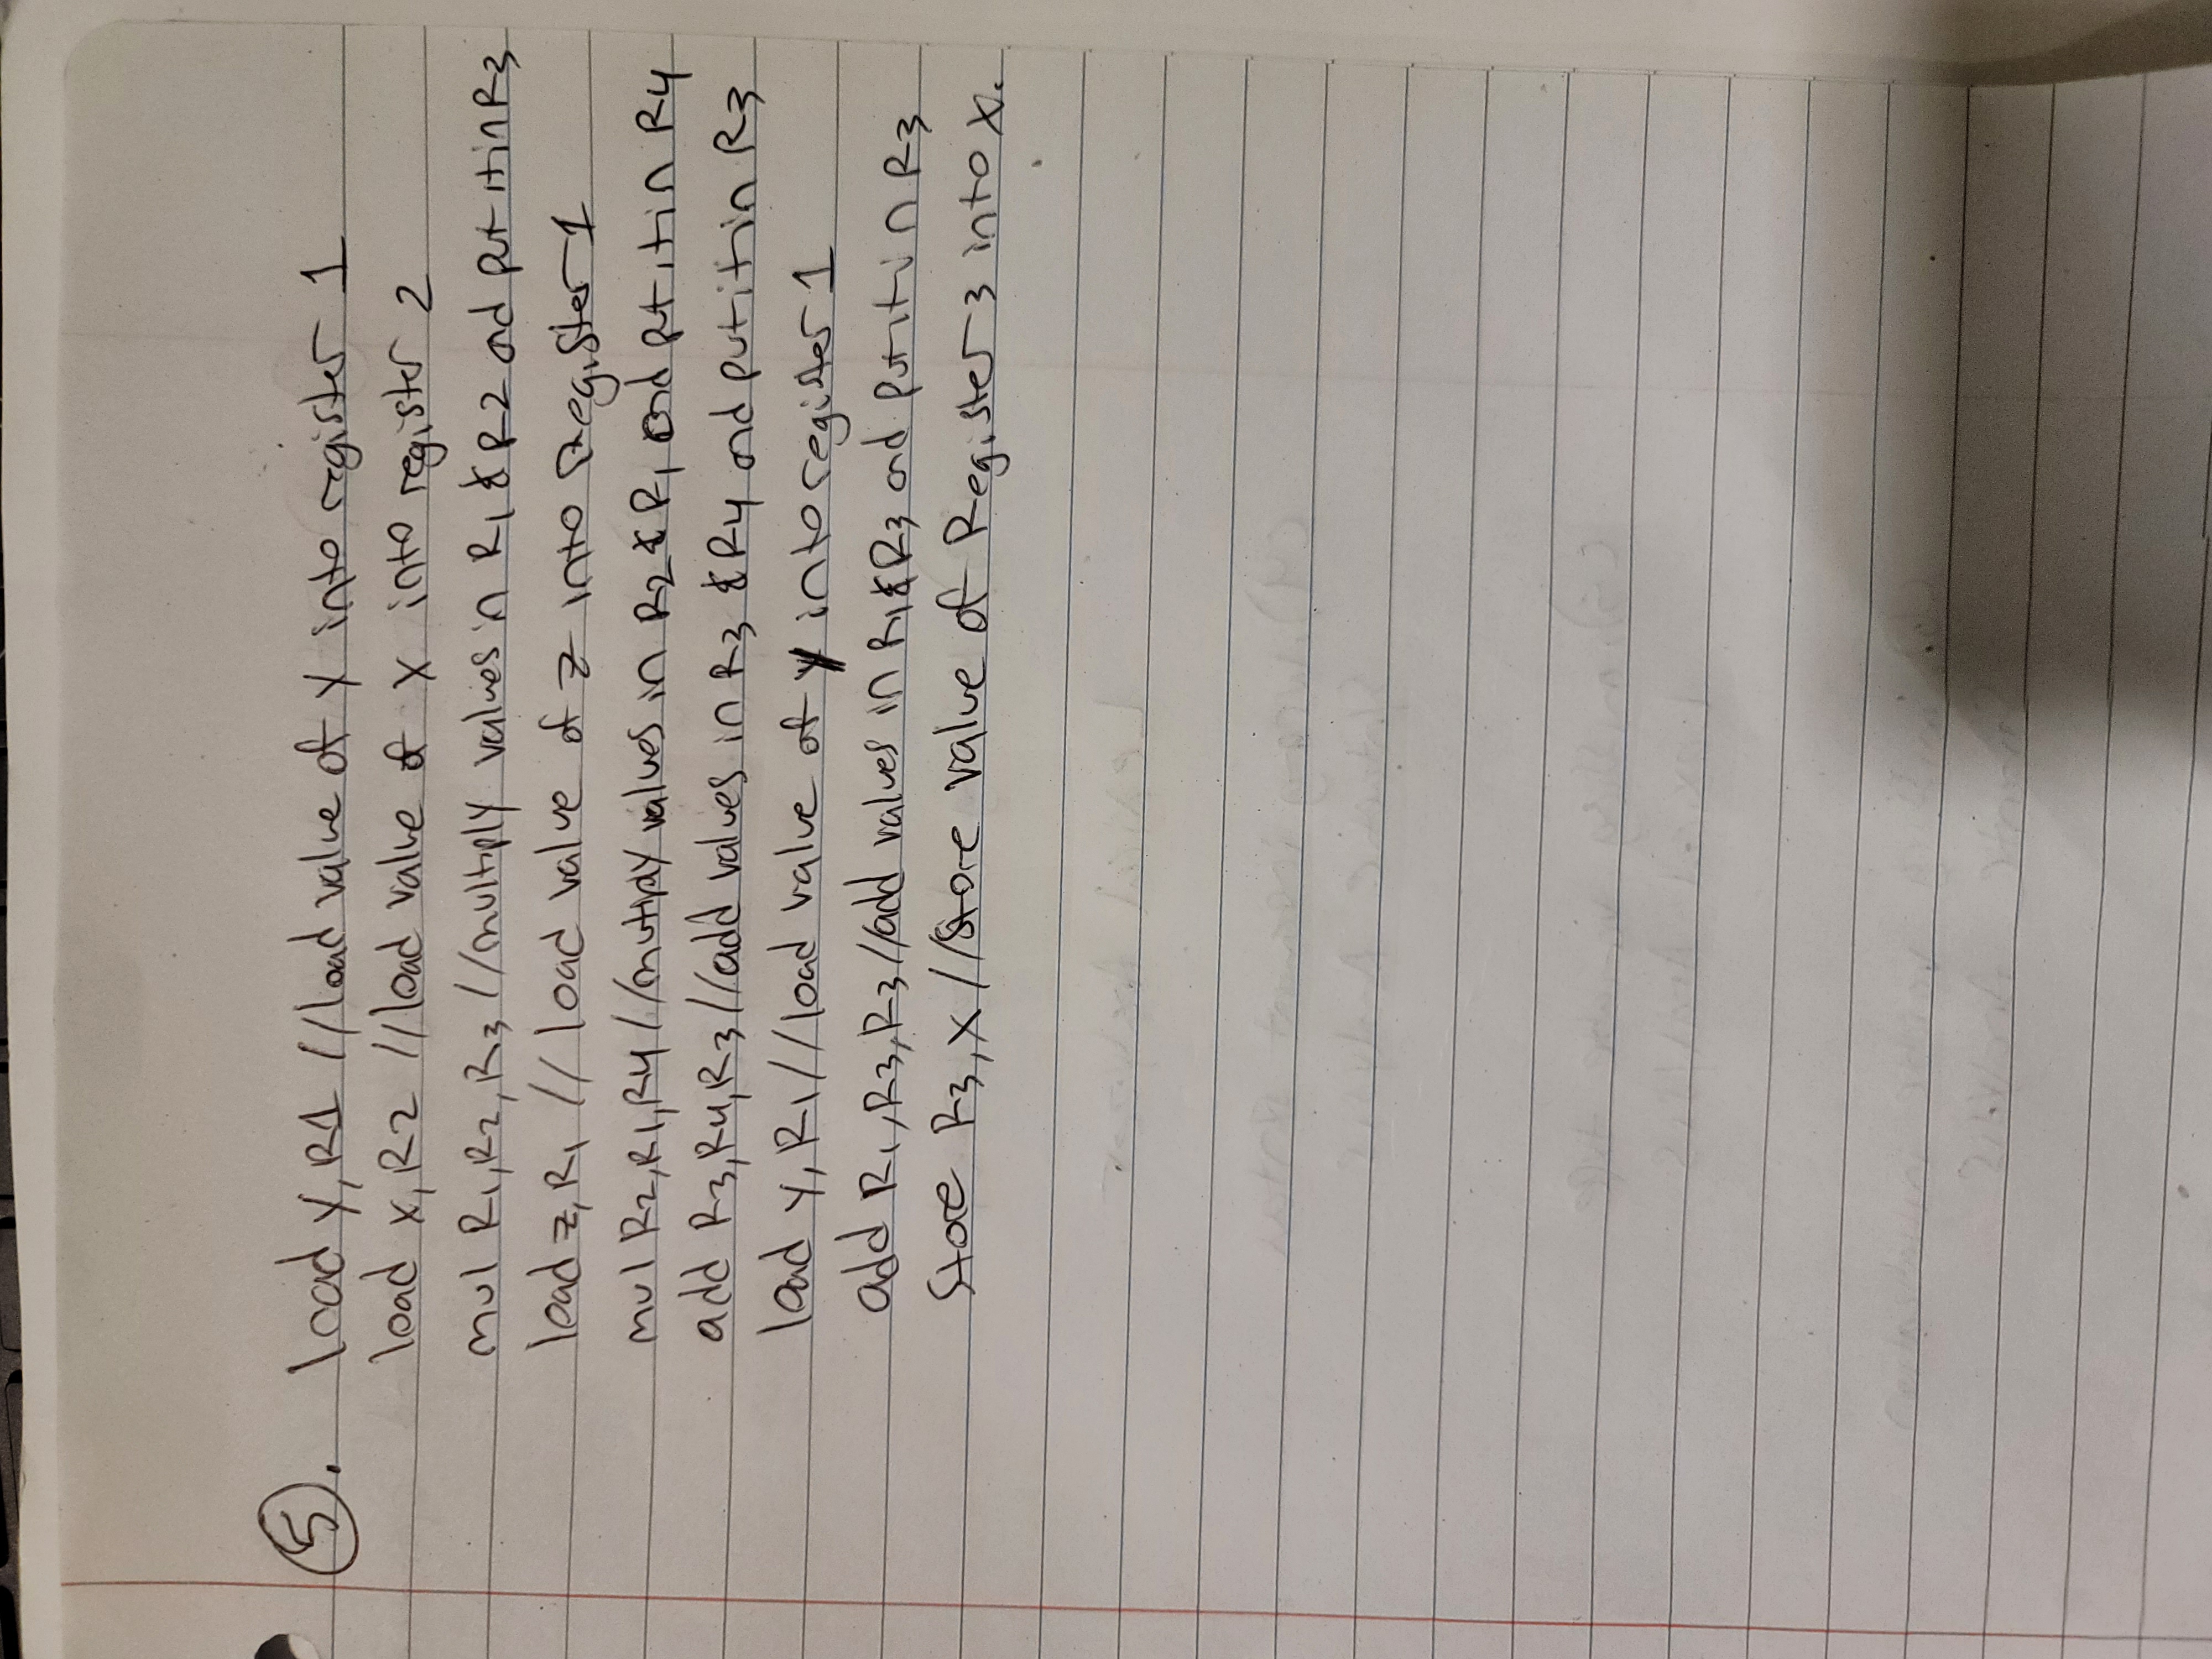 5. load y, R1 //load value of y into register 1
load x, R2 //load value of x into register 2
mul R1,R2,R3 //multiply values in R1 & R2 and put it in R3
load z, R1 // load value of z into Register 1
mul R2,R1,R4 //mutiply values in R2 & R1 and put it in R4
add R3,R4,R3 //add values in R3 & R4 and put it in R3
load y, R1 //load value of y into register 1
add R1,R3,R3 //add values in R1 & R3 and put it in R3
Store R3, x //Store value of Register 3 into x.